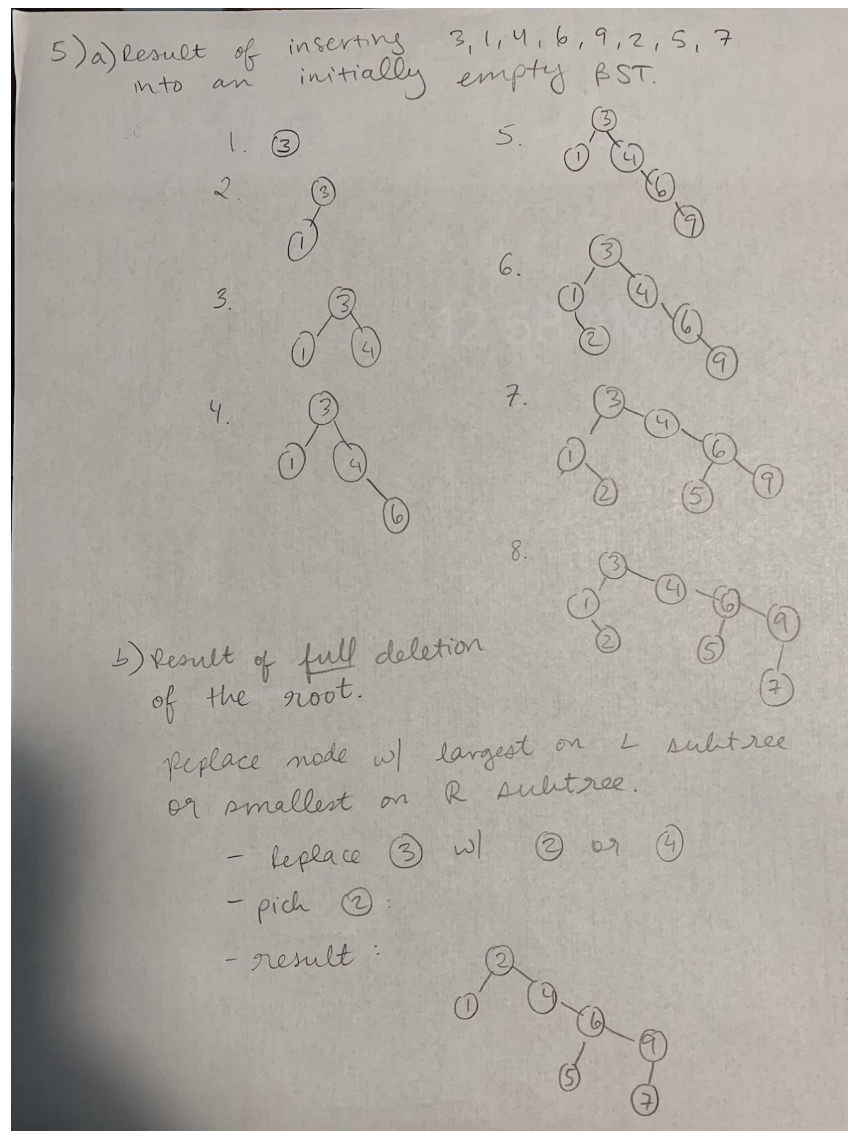 5) a) Result of inserting 3, 1, 4, 6, 9, 2, 5, 7
into an initially empty BST.
1. 3
2. 3
1
3. 3
1 4
4. 3
1 4
6
5. 3
1 4
6
9
6. 3
1 4
2 6
9
7. 3
4
1 6
2 5 9
8. 3
4
1 6
2 5 9
7
b) Result of full deletion
of the root.
Replace node w/ largest on L subtree
or smallest on R subtree.
- Replace 3 w/ 2 or 4
- pick 2 :
- result :
2
1 4
6
9
5
7